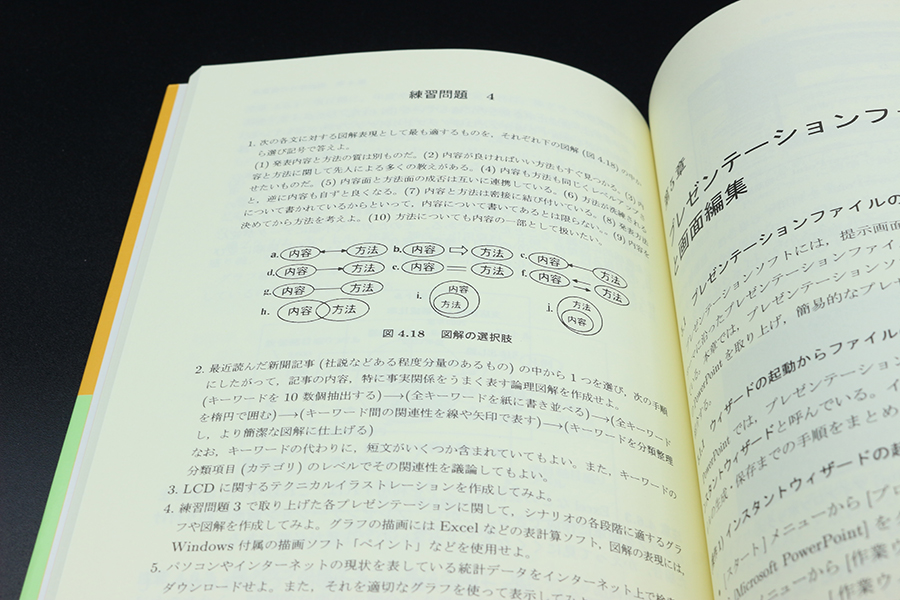 練習問題 4
1. 次の各文に対する図解表現として最も適するものを，それぞれ下の図解 (図 4.18) の中か
ら選び記号で答えよ．
(1) 発表内容と方法の質は別ものだ． (2) 内容が良ければいい方法もすぐ見つかる． (3) 内
容と方法に関して先人による多くの教えがある． (4) 内容も方法も同じくレベルアップさ
せたいものだ． (5) 内容面と方法面の成否は互いに連携している． (6) 方法が洗練される
と，逆に内容も自ずと良くなる． (7) 内容と方法は密接に結び付いている． (8) 発表方法
について書かれているからといって，内容について書いてあるとは限らない． (9) 内容を
決めてから方法を考えよ． (10) 方法についても内容の一部として扱いたい．
a. 内容 方法 b. 内容 方法 c. 内容 方法
d. 内容 方法 e. 内容 方法 f. 内容 方法
g. 内容 方法 i. 内容 方法 j. 方法 内容
h. 内容 方法
図 4.18 図解の選択肢
2. 最近読んだ新聞記事 (社説などある程度分量のあるもの) の中から 1 つを選び，次の手順
にしたがって，記事の内容，特に事実関係をうまく表す論理図解を作成せよ．
(キーワードを 10 数個抽出する)→(全キーワードを紙に書き並べる)→(全キーワード
を楕円で囲む)→(キーワード間の関連性を線や矢印で表す)→(キーワードを分類整理
し，より簡潔な図解に仕上げる)
なお，キーワードの代わりに，短文がいくつか含まれていてもよい．また，キーワードの
分類項目 (カテゴリ) のレベルでその関連性を議論してもよい．
3. LCD に関するテクニカルイラストレーションを作成してみよ．
4. 練習問題 3 で取り上げた各プレゼンテーションに関して，シナリオの各段階に適するグラ
フや図解を作成してみよ．グラフの描画には Excel などの表計算ソフト，図解の表現には，
Windows 付属の描画ソフト「ペイント」などを使用せよ．
5. パソコンやインターネットの現状を表している統計データをインターネット上で検
ダウンロードせよ．また，それを適切なグラフを使って表示してみ
第 5 章
プレゼンテーションファ
と画面編集
プレゼンテーションファイルの
ゼンテーションソフトには，提示画面
プレゼンテーションファイ
本章では，プレゼンテーションソ
PowerPoint を取り上げ，簡易的なプレ
ウィザードの起動からファイル
PowerPoint では，プレゼンテーション
ウィザードと呼んでいる．イ
生成・保存までの手順をまとめ
インスタントウィザードの起
[スタート] メニューから [プロ
[Microsoft PowerPoint] をイ
メニューから [作業ウ